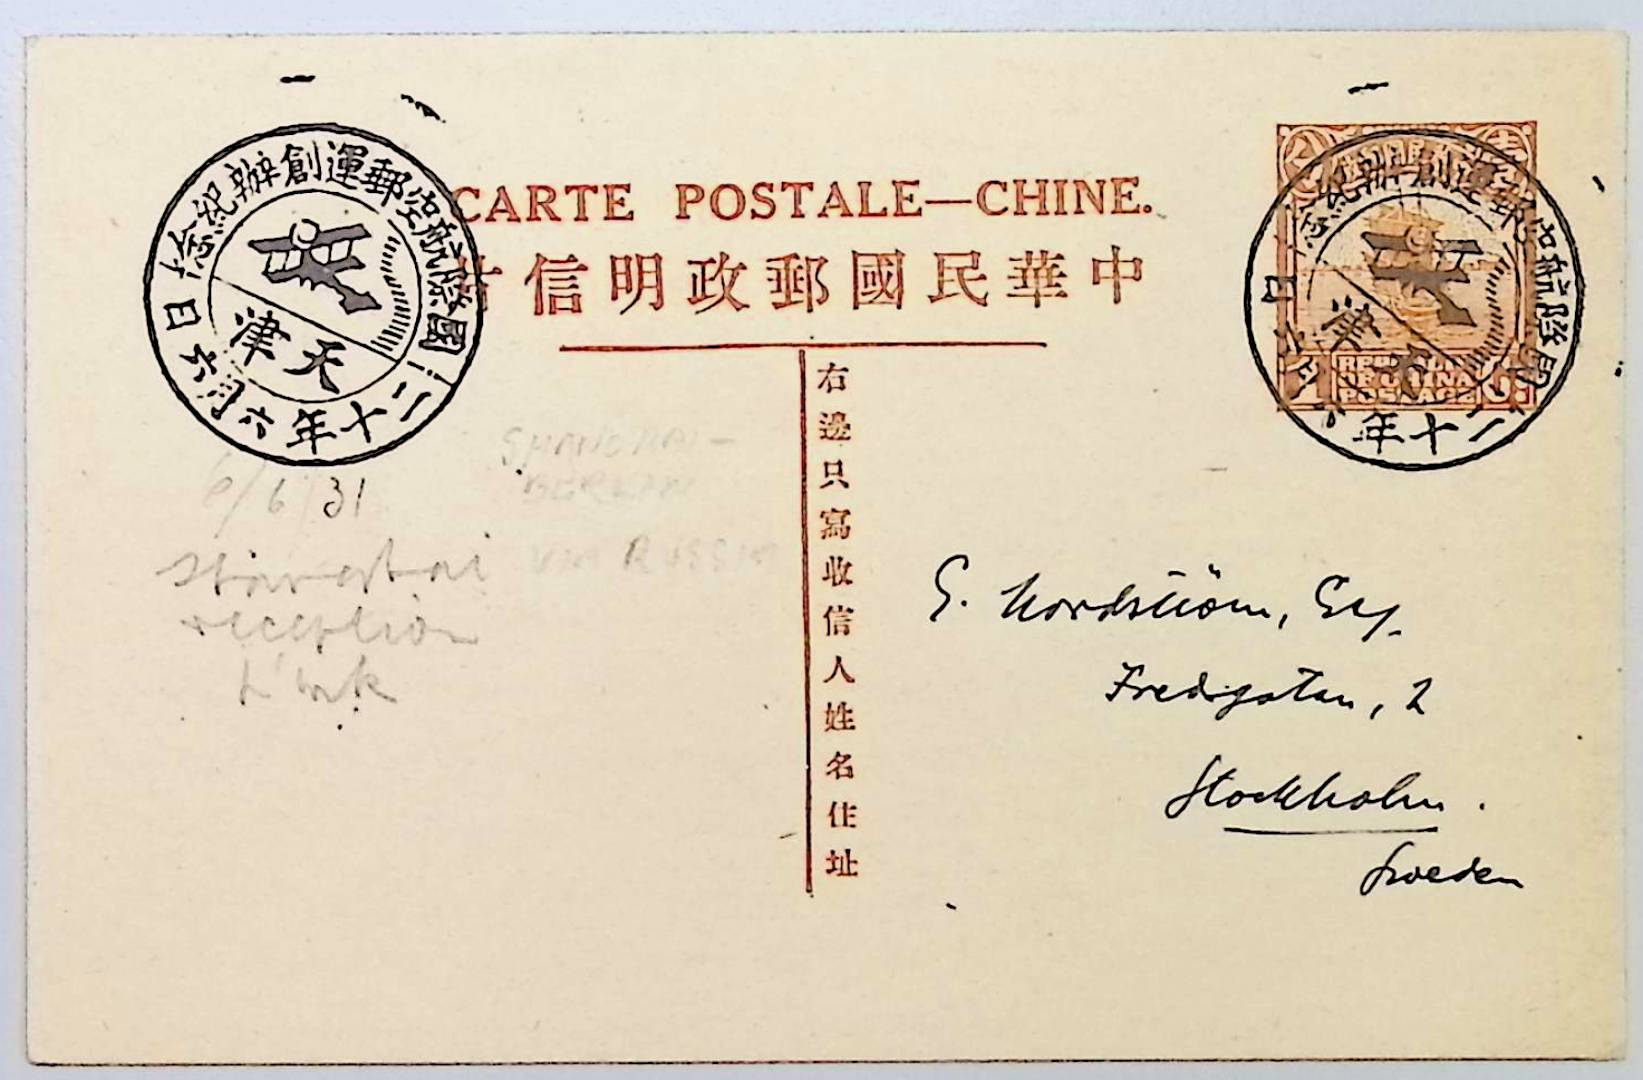 CARTE POSTALE—CHINE.
中華民國郵政明信片
國際航空郵運創辦紀念
天津
二十年六月六日
國際航空郵運創辦紀念
津
二十年
REPUBLIC
OF CHINA
POSTAGE
右邊只寫收信人姓名住址
6/6 31
SHANGHAI-
BERLIN
VIA RUSSIA
reception
G. Nordström, Esq.
Fredsgatan, 2
Stockholm.
Sweden